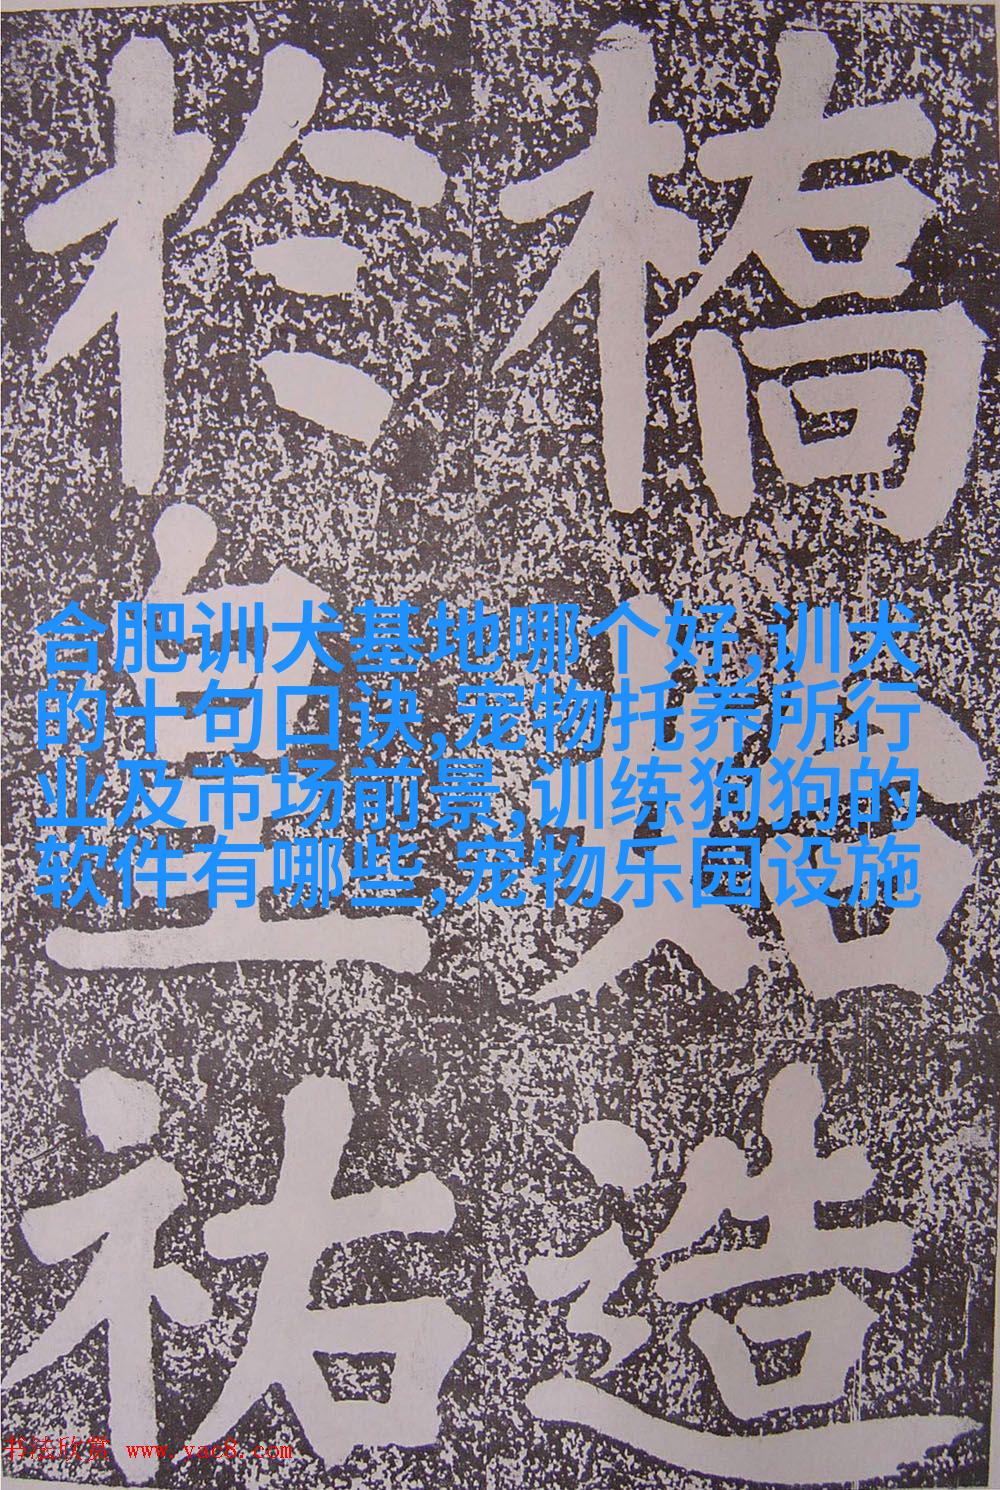 橋始造
於皇祐
合肥训犬基地哪个好,训犬
的十句口诀,宠物托养所行
业及市场前景,训练狗狗的
软件有哪些,宠物乐园设施
书法欣赏 www.yac8.com